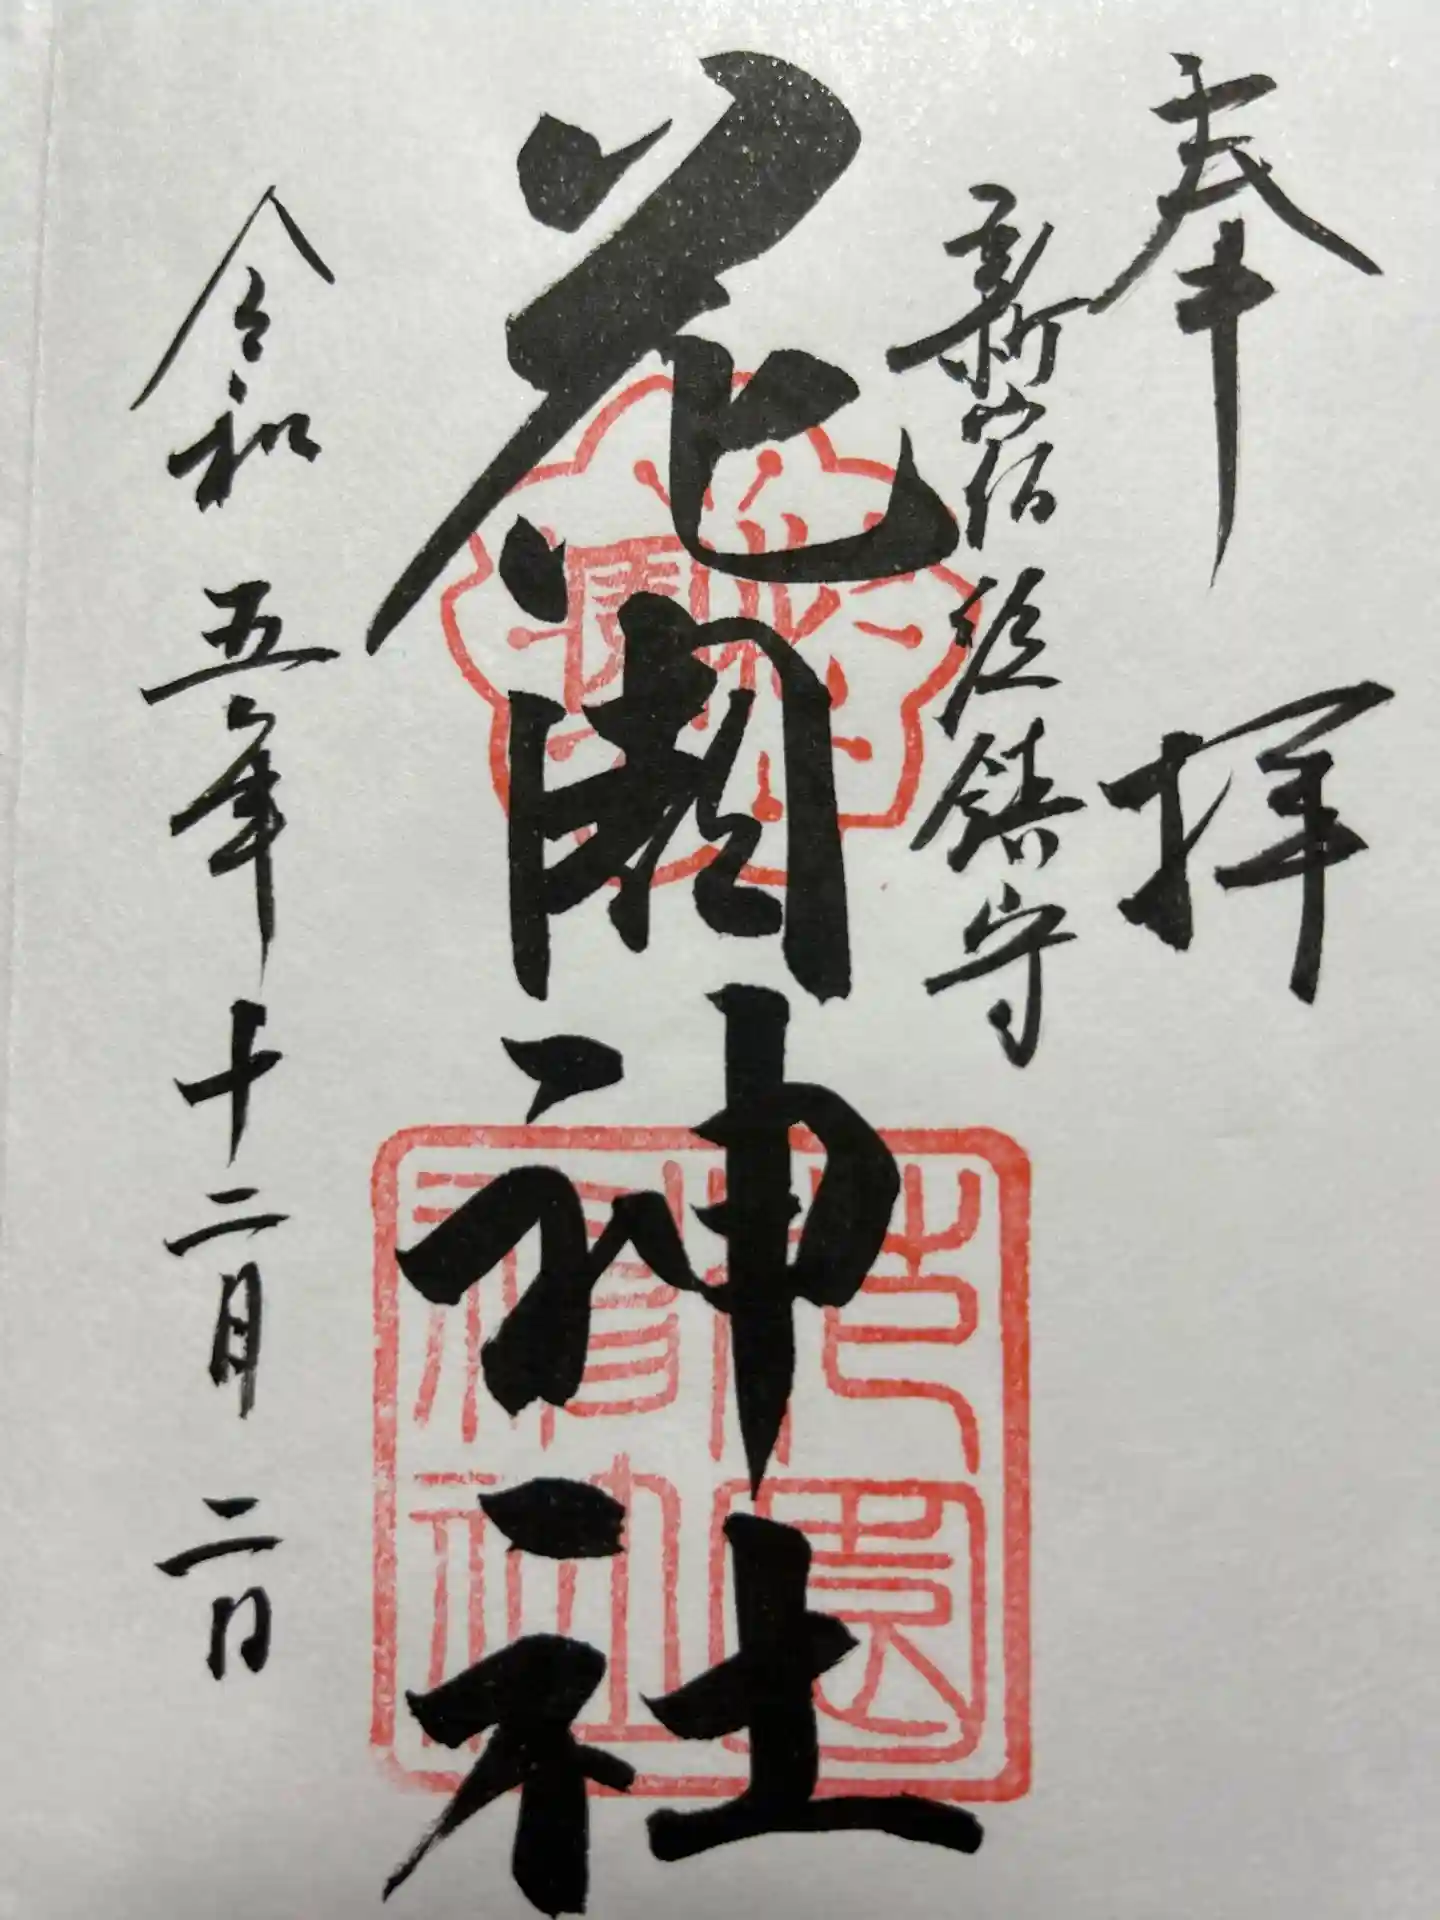 奉拝
新宿総鎮守
花園神社
令和五年十二月二日
花園
花園神社